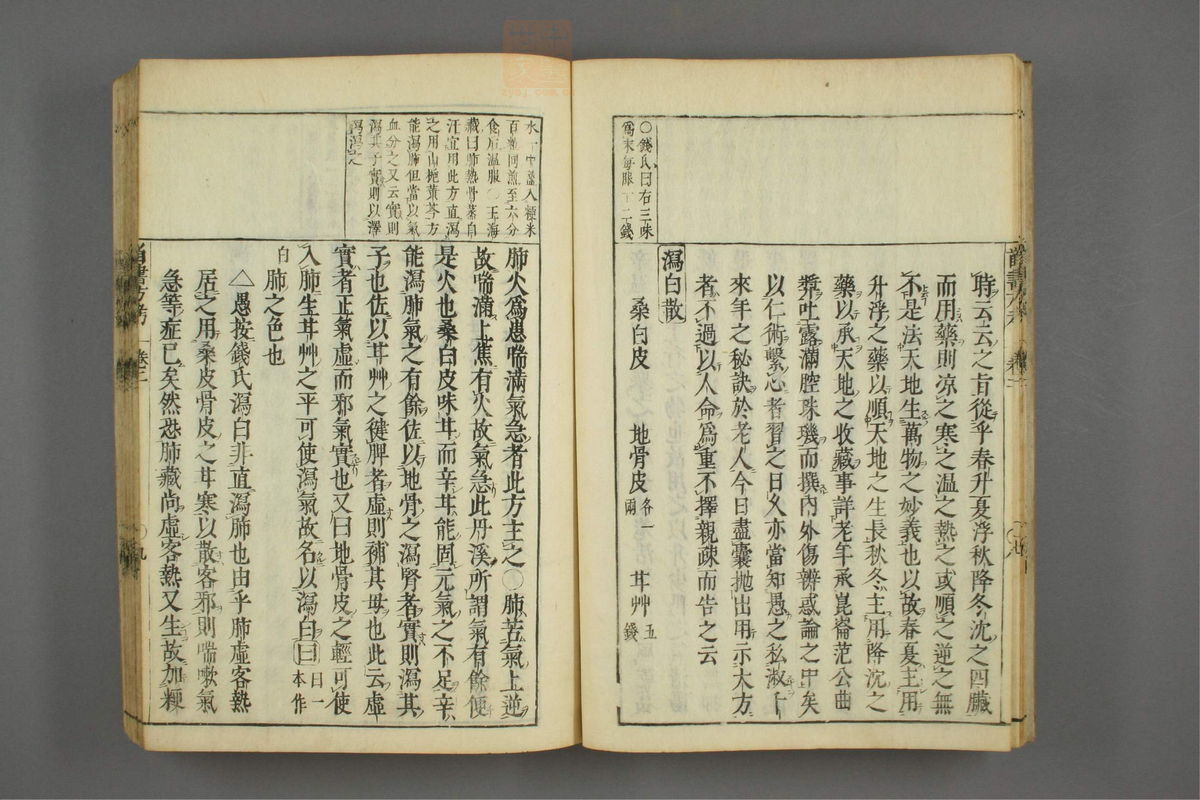 時云云之肯從乎春升夏浮秋降冬沈之四臟
而用藥則涼之寒之温之熱之或順之逆之無
不是法天地生萬物之妙義也以故春夏主用
升浮之藥以順天地之生長秋冬主用降沈之
藥以承天地之收藏事詳老年承崑崙范公曲
奬吐露滿腔珠璣而撰內外傷辨惑論之中矣
以仁術繫心者習之日久亦當知愚之私淑
來年之秘訣於老人今日盡囊拋出用示大方
者不過以人命爲重不擇親疎而告之云
○錢氏曰右三味
爲末每服一二錢
瀉白散
桑白皮 地骨皮各一兩 甘艸五錢
水一中盞入粳米
百粒同煎至六分
食后温服○王海
藏曰肺熱骨蒸自
汗宜用此方直瀉
之用山梔黄芩方
能瀉肺但當以氣
血分之又云實則
瀉其子實則以澤
瀉瀉之
肺火爲患喘滿氣急者此方主之○肺苦氣上逆
故喘滿上焦有火故氣急此丹溪所謂氣有餘便
是火也桑白皮味甘而辛甘能固元氣之不足辛
能瀉肺氣之有餘佐以地骨之瀉腎者實則瀉其
子也佐以甘艸之健脾者虛則補其母也此云虛
實者正氣虛而邪氣實也又曰地骨皮之輕可使
入肺生甘艸之平可使瀉氣故名以瀉白曰曰一本作白
肺之色也
△愚按錢氏瀉白非直瀉肺也由乎肺虛客熱
居之用桑皮骨皮之甘寒以散客邪則喘嗽氣
急等症已矣然恐肺藏尚虛客熱又生故加粳